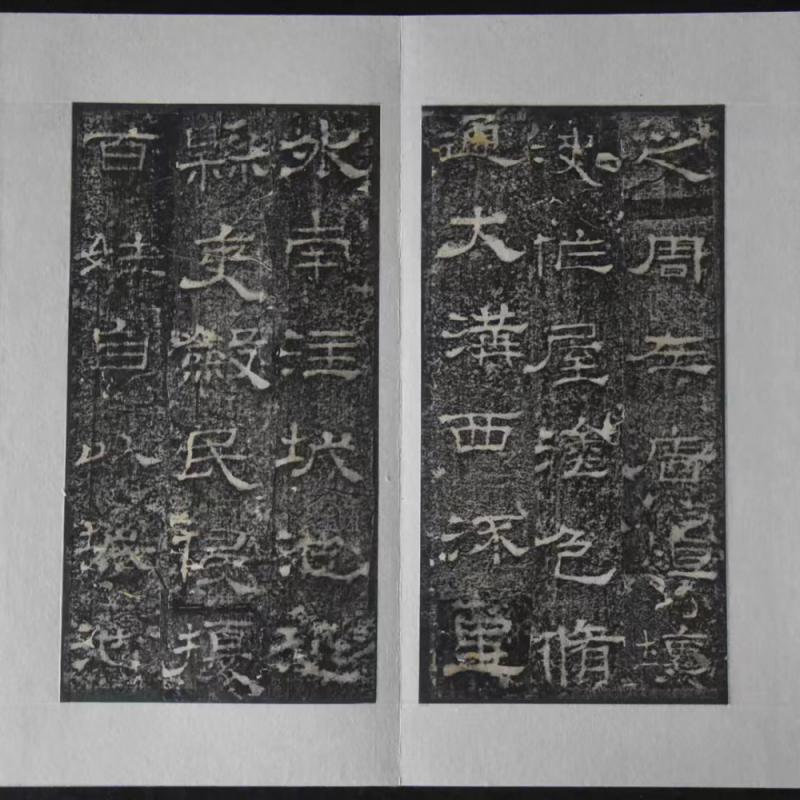 之周左廧垣壞
決作屋塗色脩
通大溝西流里
外南注城池恐
縣吏斂民侵擾
百姓自以城池